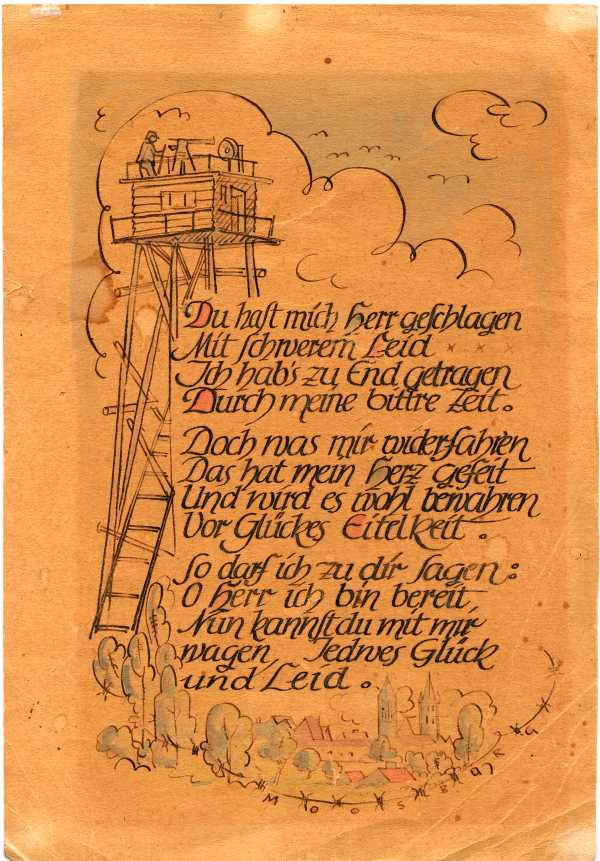 Du hast mich Herr geschlagen
Mit schwerem Leid
Ich hab's zu End getragen
Durch meine bittre Zeit.
Doch was mir widerfahren
Das hat mein Herz gefeit
Und wird es wohl bewahren
Vor Glückes Eitelkeit.
So darf ich zu dir sagen:
O Herr ich bin bereit,
Nun kannst du mit mir
wagen, Jedwes Glück
und Leid.